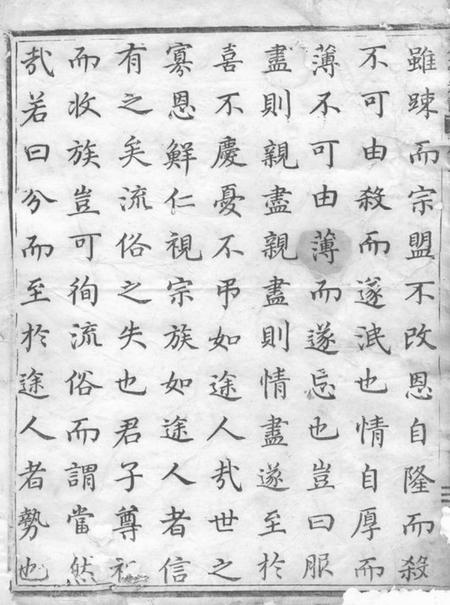 雖踈而宗盟不改恩自隆而殺
不可由殺而遂泯也情自厚而
薄不可由薄而遂忘也豈曰服
盡則親盡親盡則情盡遂至於
喜不慶憂不弔如途人㢤世之
寡恩鮮仁視宗族如途人者信
有之矣流俗之失也君子尊
而收族豈可徇流俗而謂當然
㢤若曰分而至於途人者勢也